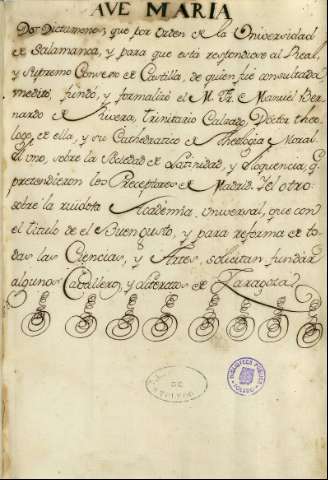 AVE MARIA
Dos Dictamenes, que por orden de la Universidad
de Salamanca, y para que esta respondiese al Real,
y Supremo Consejo de Castilla, de quien fue consultada
meditó, fundó, y formalizó el M. Fr. Manuel Ber-
nardo de Rivera, Trinitario Calzado, Doctor theo-
logo de ella, y su Cathedratico de Theologia Moral.
El uno, sobre la Sociedad de Latinidad, y Eloquencia, q.
pretendieron los Preceptores de Madrid. Y el otro:
sobre la ruidosa Academia, Universal, que con
el titulo de el Buen gusto, y para reforma de to-
das las Ciencias, y Artes, solicitan fundar
algunos Caballeros, y aliteratos de Zaragoza.
DE
TOLEDO
BIBLIOTECA PUBLICA
TOLEDO